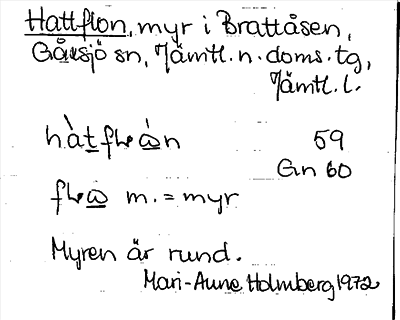 Hattflon, myr i Brattåsen,
Gåxsjö sn, Jämtl. n. doms. tg,
Jämtl. l.
59
Gn 60
m. = myr
Myren är rund.
Mari-Anne Holmberg 1972